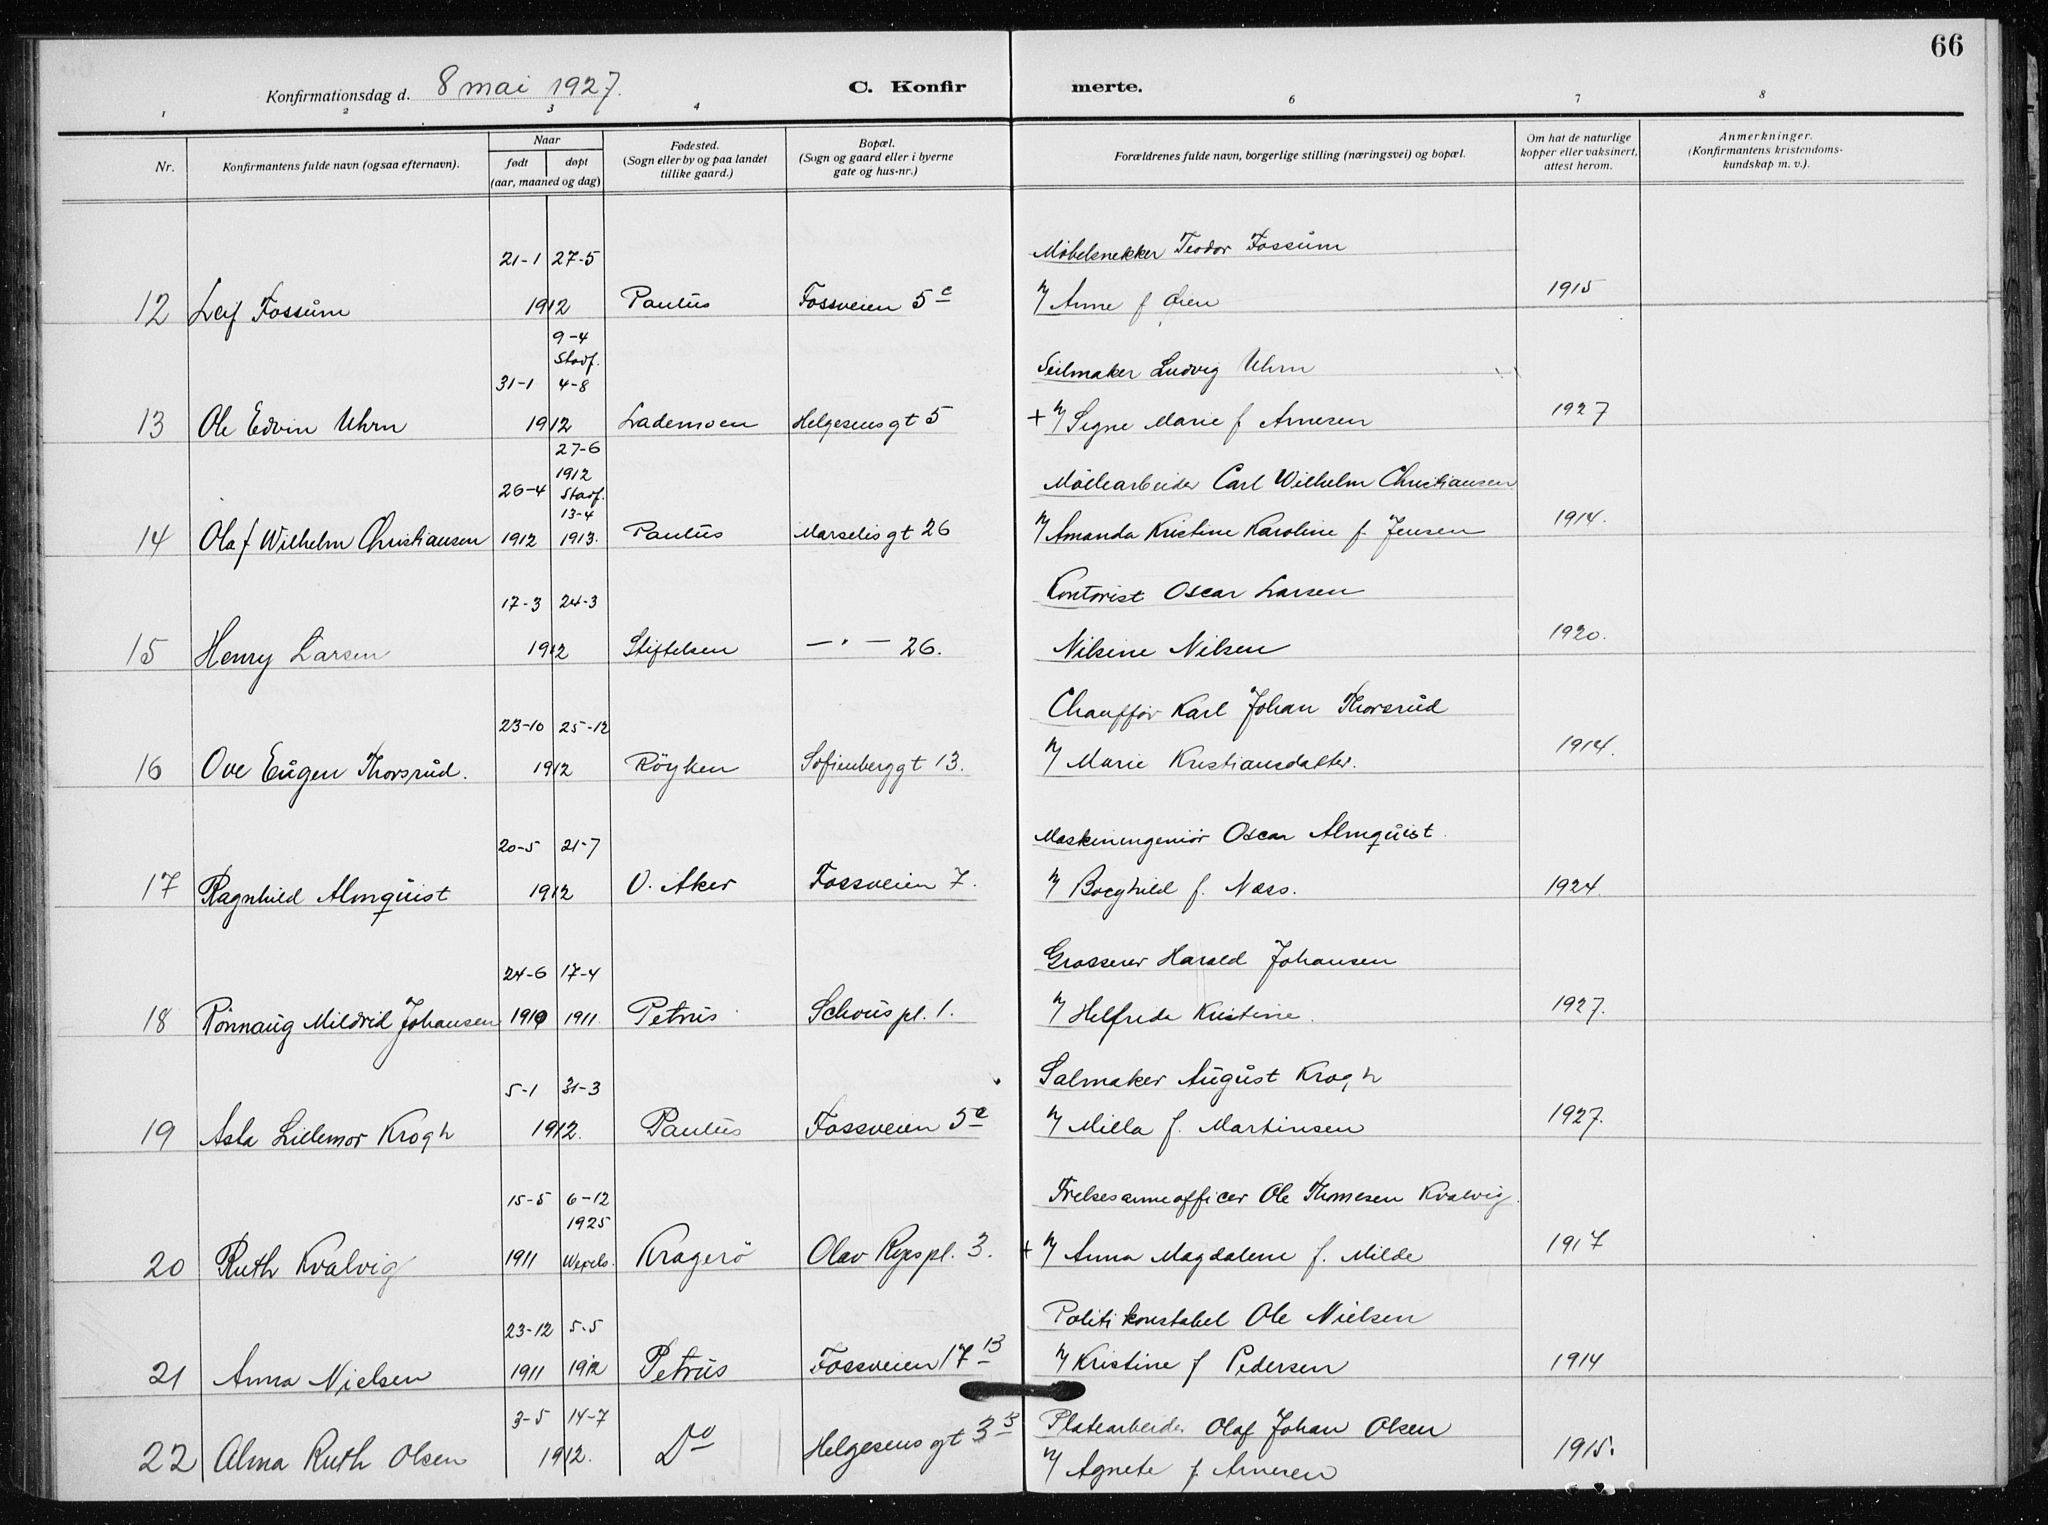 66
Konfirmationsdag d. 8 mai 1927.
C. Konfir merte.
1 2 3 4 6 7 8
Nr.
Konfirmantens fulde navn (ogsaa efternavn).
Naar
født døpt
(aar, maaned og dag)
Fødested.
(Sogn eller by og paa landet
tillike gaard.)
Bopæl.
(Sogn og gaard eller i byerne
gate og hus-nr.)
Forældrenes fulde navn, borgerlige stilling (næringsvei) og bopæl.
Om hat de naturlige
kopper eller vaksinert,
attest herom.
Anmerkninger.
(Konfirmantens kristendoms-
kundskap m. v.).
21-1 27-5 Møbelsnekker Teodor Fossum
12 Leif Fossum 1912 Paulus Fossveien 5c Anne f Øien 1915
9-4
Stadf.
31-1 4-8 Seilmaker Ludvig Uhrn
13 Ole Edvin Uhrn 1912 Lademoen Helgesens gt 5 + Signe Marie f Arnesen 1927
27-6
1912
26-4 Stadf. Møllearbeider Carl Wilhelm Christiansen
13-4
14 Olaf Wilhelm Christiansen 1912 1913. Paulus Marselis gt 26 Amanda Kristine Karoline f. Jensen 1914.
17-3 24-3 Kontorist Oscar Larsen
15 Henry Larsen 1912 Stiftelsen — " — 26. Nilsine Nilsen 1920.
23-10 25-12 Chauffør Karl Johan Thorsrud
16 Ove Eugen Thorsrud. 1912 Röyken Sofienberggt 13. Marie Kristiansdatter. 1914.
20-5 21-7 Maskiningeniør Oscar Almquist.
17 Ragnhild Almquist 1912 V. Aker Fossveien 7. Borghild f. Næss. 1924.
24-6 17-4 Grosserer Harald Johansen
18 Rönnaug Mildrid Johansen 1910 1911. Petrus Schous pl. 1. Helfrede Kristine. 1927.
5-1 31-3 Salmaker August Krogh
19 Asla Lillemor Krogh 1912. Paulus Fossveien 5c Milla f. Martinsen 1927.
15-5 6-12 Frelsesarmeofficer Ole Thomesen Kvalvig.
1925
20 Ruth Kvalvig 1911 Wexels. Kragerö Olav Ryes pl. 3. + Anna Magdalene f. Milde 1917
23-12 5-5 Politikonstabel Ole Nielsen
21 Anna Nielsen 1911 1912 Petrus Fossveien 17 B Kristine f Pedersen 1914
3-5 14-7 Platearbeider Olaf Johan Olsen
22 Alma Ruth Olsen 1912. Do Helgesens gt 3 B Agnete f. Arnesen 1915.